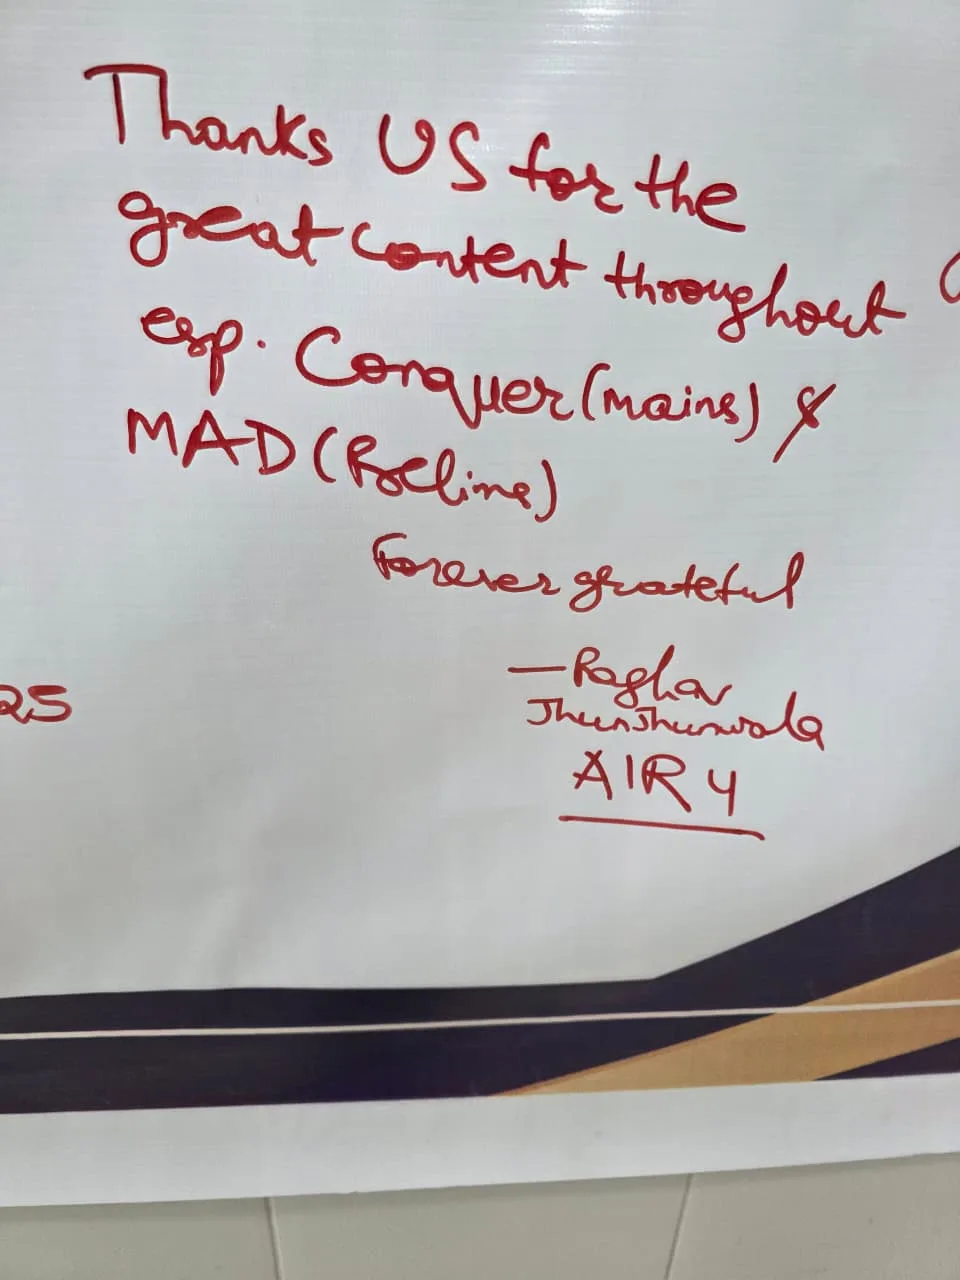 Thanks US for the
great content throughout
esp. Conquer (mains) &
MAD (Prelims)
Forever grateful
— Raghav
Jhunjhunwala
AIR 4
25